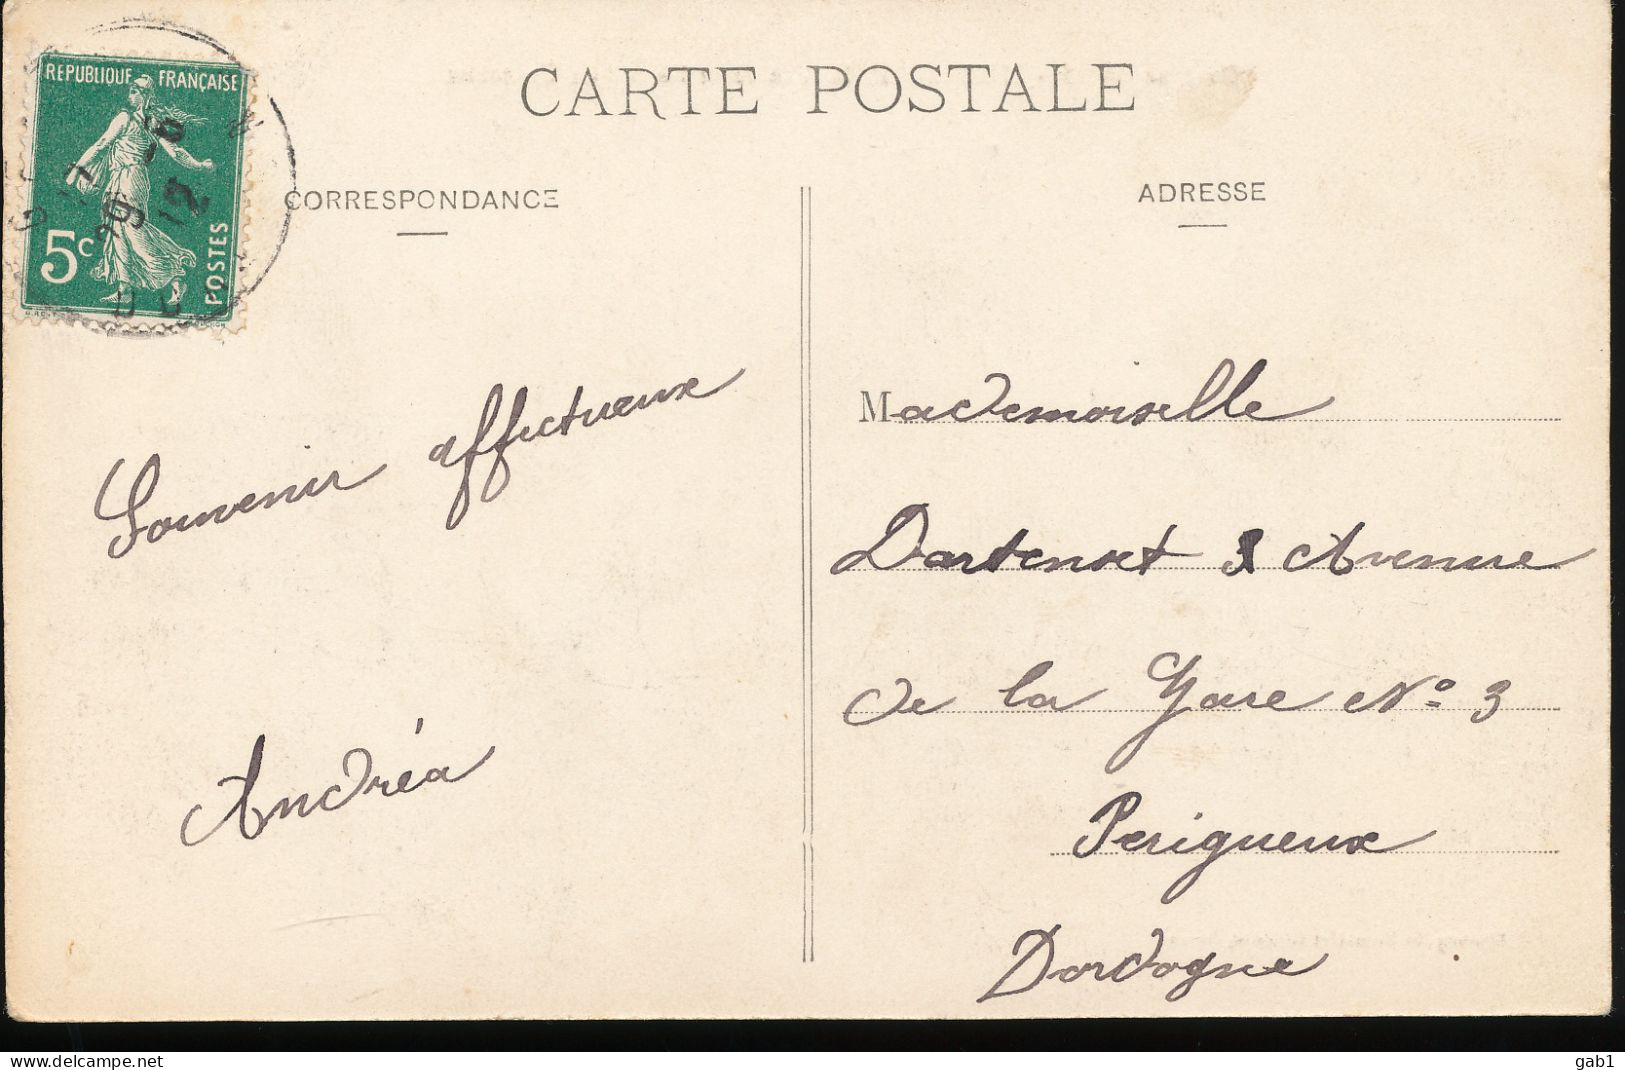 CARTE POSTALE
REPUBLIQUE FRANÇAISE
5c
POSTES
CORRESPONDANCE
Souvenir affectueux
Andréa
ADRESSE
Mademoiselle
Dartenset 3 Avenue
de la Gare No 3
Perigueux
Dordogne
delcampe.net
gab1